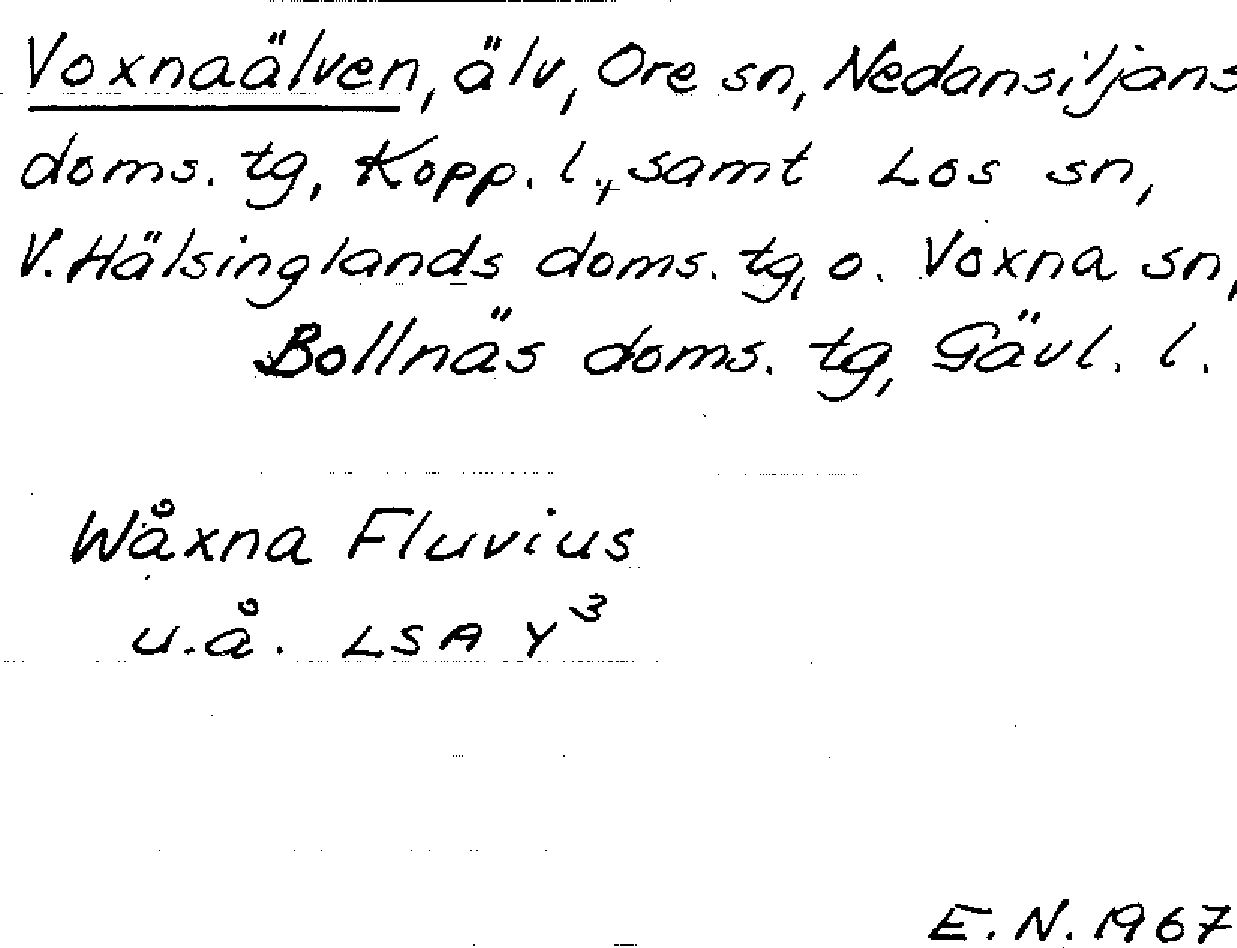 Voxnaälven, älv, Ore sn, Nedansiljans
doms. tg, Kopp. l., samt Los sn,
V. Hälsinglands doms. tg, o. Voxna sn,
Bollnäs doms. tg, Gävl. l.
Wåxna Fluvius
u.å. LSA Y³
E.N. 1967